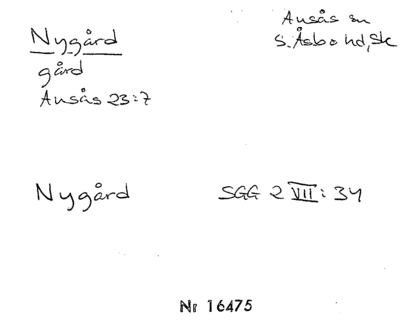 Nygård
gård
Ausås 23:7
Ausås sn
S. Åsbo hd, Sk
Nygård
SGG 2 VII: 34
Nr 16475